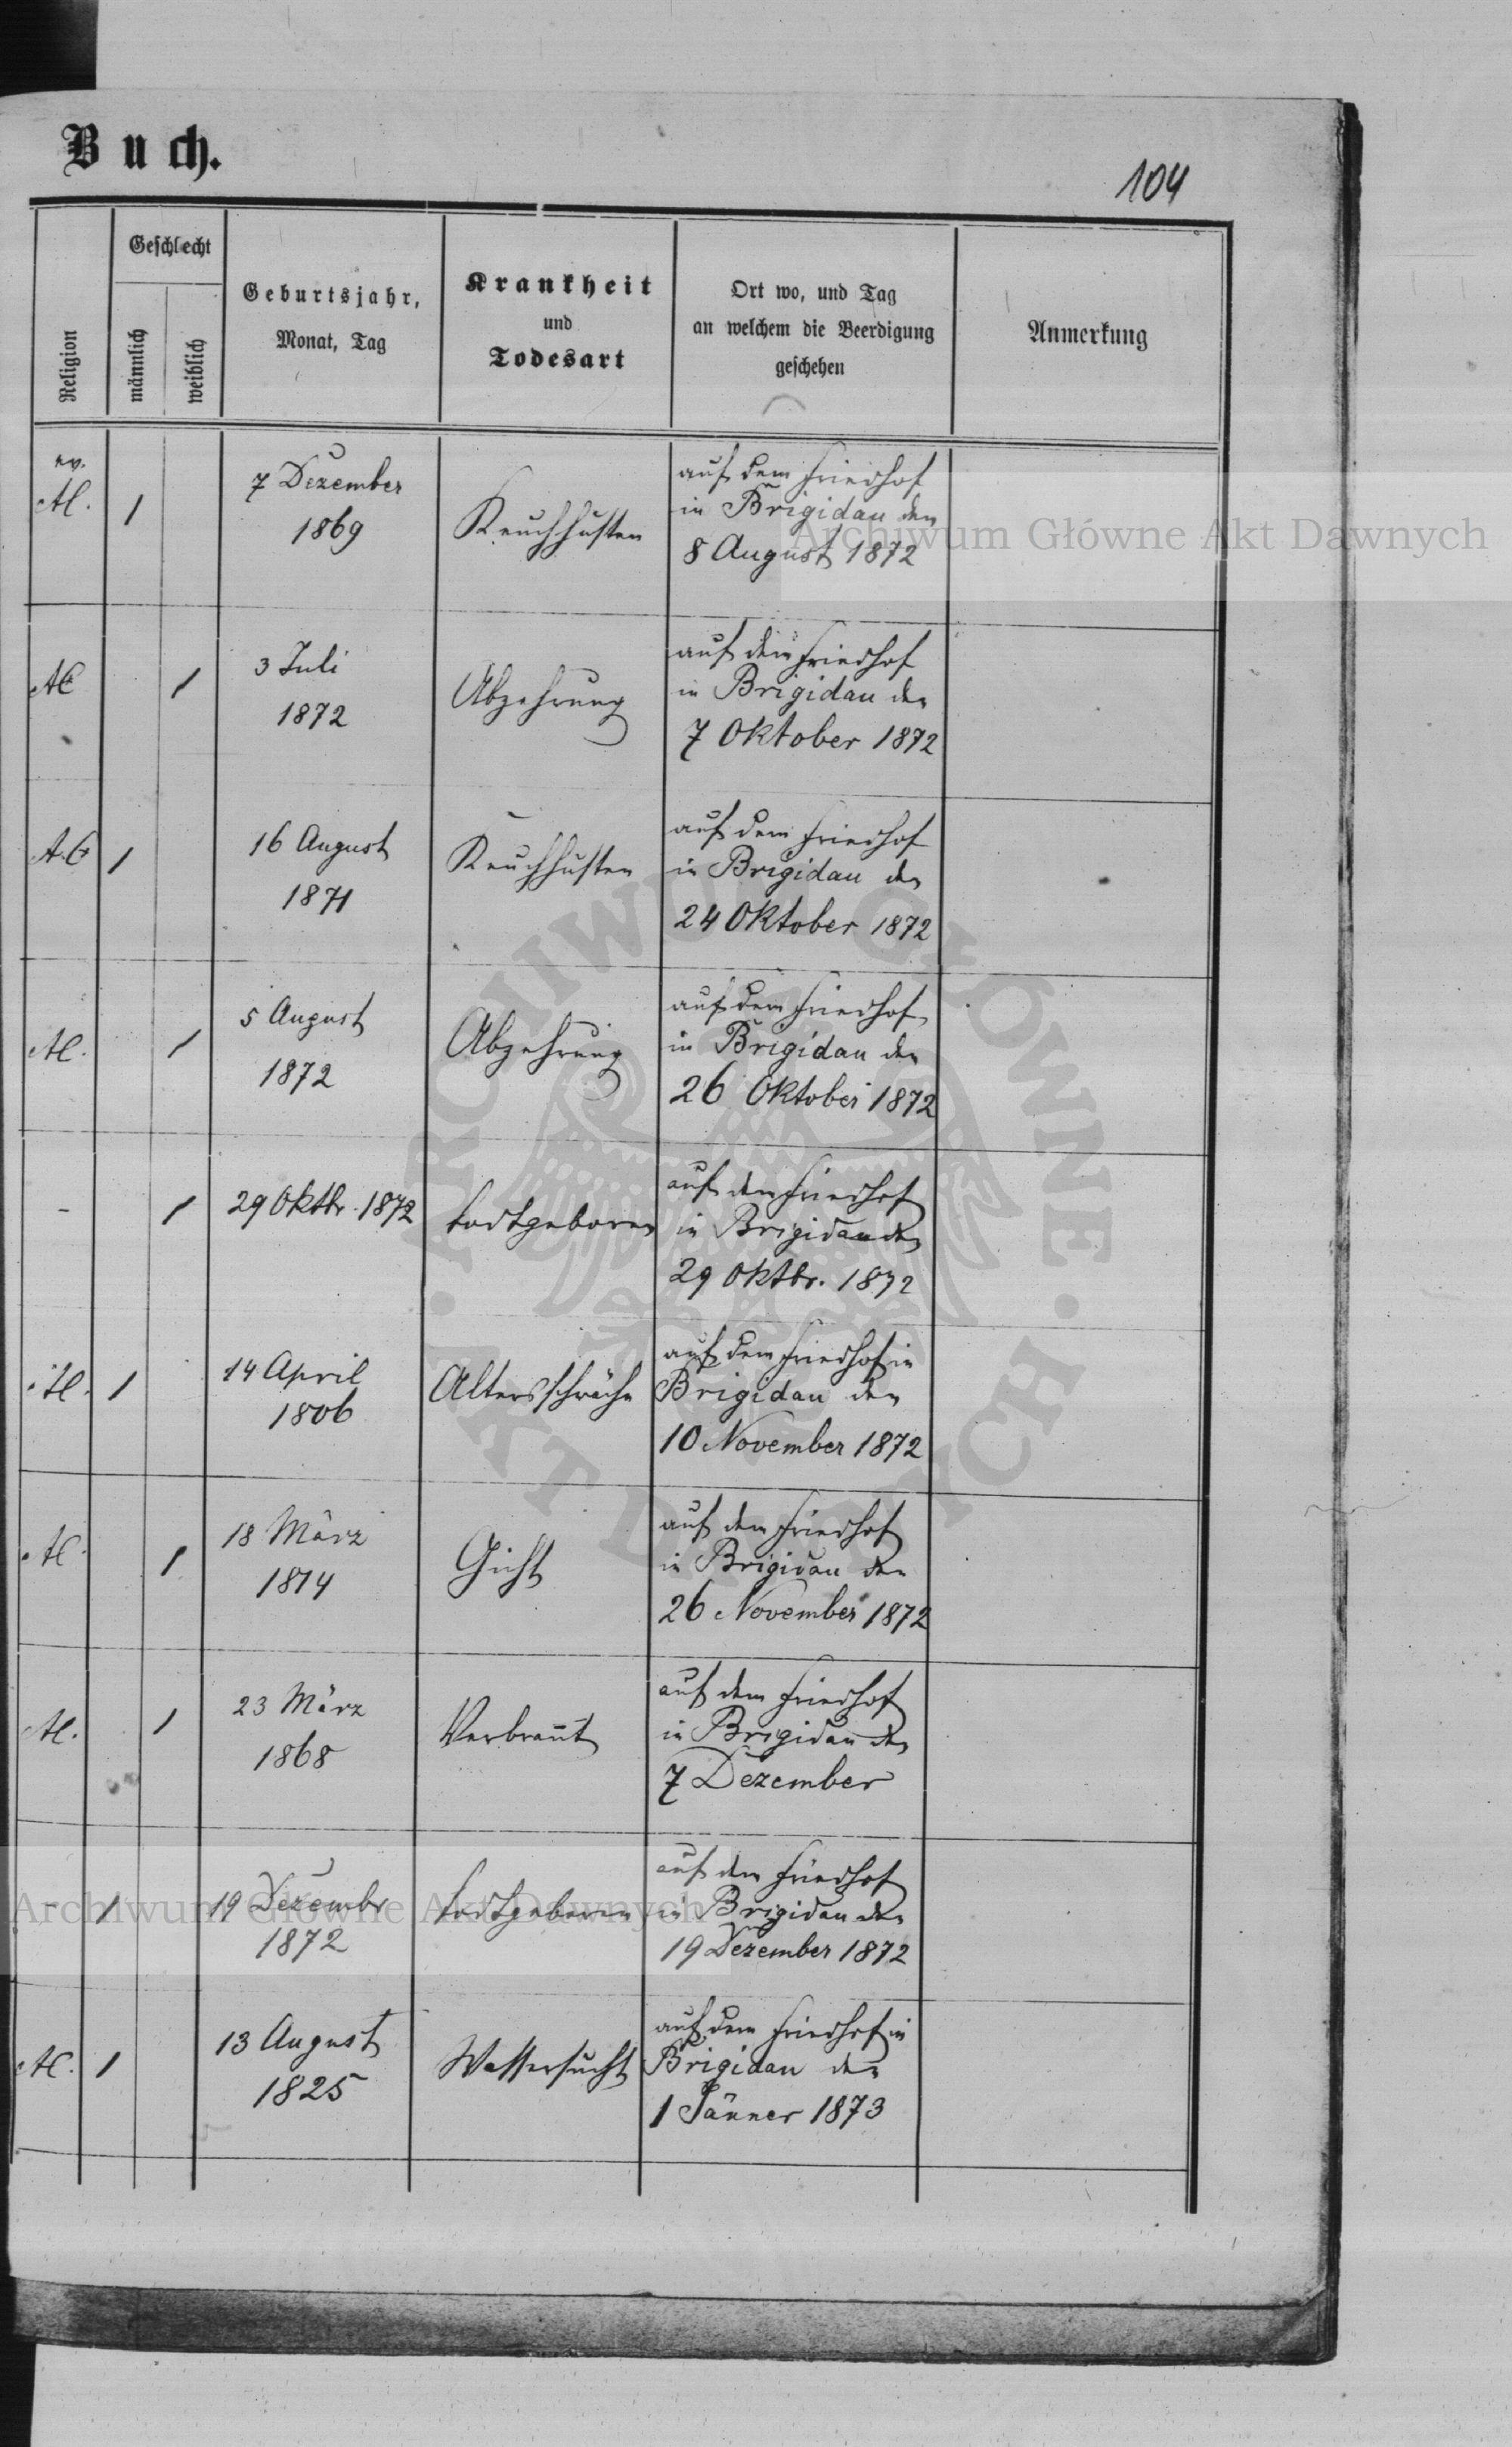 Buch.
104
Religion
Geschlecht
männlich
weiblich
Geburtsjahr,
Monat, Tag
Krankheit
und
Todesart
Ort wo, und Tag
an welchem die Beerdigung
geschehen
Anmerkung
ev.
AC.
1
7 Dezember
1869
Keuchhusten
auf dem Friedhof
in Brigidau den
8 August 1872
AC
1
3 Juli
1872
Abzehrung
auf dem Friedhof
in Brigidau den
7 Oktober 1872
A.C
1
16 August
1871
Keuchhusten
auf dem Friedhof
in Brigidau den
24 Oktober 1872
AC.
1
5 August
1872
Abzehrung
auf dem Friedhof
in Brigidau den
26 Oktober 1872
-
1
29 Oktbr. 1872
todtgeboren
auf dem Friedhof
in Brigidau den
29 Oktbr. 1872
AC.
1
14 April
1806
Altersschwäche
auf dem Friedhof in
Brigidau den
10 November 1872
AC.
1
18 März
1814
Gicht
auf dem Friedhof
in Brigidau den
26 November 1872
AC.
1
23 März
1868
Verbrannt
auf dem Friedhof
in Brigidau den
7 Dezember
-
1
19 Dezembr
1872
todtgeboren
auf dem Friedhof
in Brigidau den
19 Dezember 1872
AC.
1
13 August
1825
Wassersucht
auf dem Friedhof in
Brigidau den
1 Jänner 1873
Archiwum Główne Akt Dawnych
ARCHIWUM GŁÓWNE · AKT DAWNYCH ·
Archiwum Główne Akt Dawnych